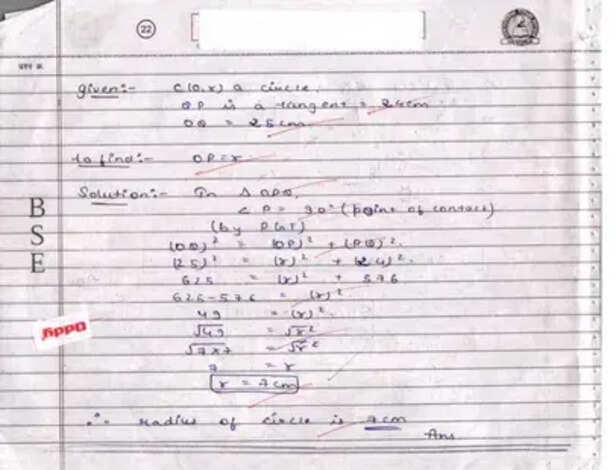 22
2
प्रश्न क्र.
Given:- C(O,r) a circle.
QP is a tangent = 24cm
OQ = 25cm
to find:- OP=r
Solution:- In Δ OPQ,
∠P = 90° (point of contact)
(by PGT)
(OQ)² = (OP)² + (PQ)².
(25)² = (r)² + (24)².
625 = (r)² + 576
625-576 = (r)²
49 = (r)²
√49 = √r²
√7×7 = √r²
7 = r
r = 7cm
∴ radius of circle is 7cm
Ans
B
S
E
Oddly